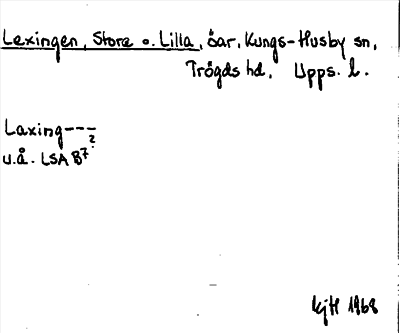 Lexingen, Stora o. Lilla, öar, Kungs-Husby sn,
Trögds hd, Upps. l.
Laxing---
?
u.å. LSA B7
KjH 1968